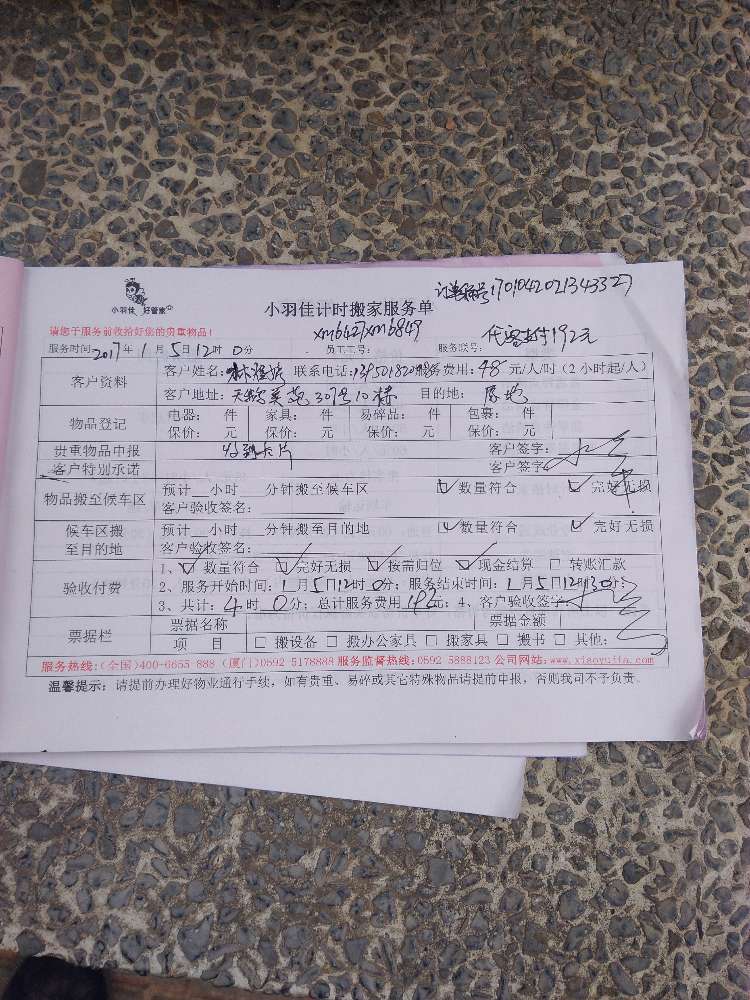 小羽佳 好管家
订单编号1701042021343327
小羽佳计时搬家服务单
请您于服务前收拾好您的贵重物品!
xm6427xm6849
代客封192元
服务时间:2017年1月5日12时0分 员工工号: 服务联号:
客户资料
客户姓名:林 联系电话: 服务费用:48元/人/时(2小时起/人)
客户地址: 307号10楼 目的地:
物品登记
电器: 件 家具: 件 易碎品: 件 包裹: 件
保价: 元 保价: 元 保价: 元 保价: 元
贵重物品申报 收到卡片 客户签字:
客户特别承诺 客户签字:
物品搬至候车区
预计__小时 分钟搬至候车区 ☑数量符合 ☑完好无损
客户验收签名:
候车区搬至目的地
预计__小时 分钟搬至目的地 ☑数量符合 ☑完好无损
客户验收签名:
验收付费
1、☑数量符合 ☑完好无损 ☑按需归位 ☑现金结算 □转账汇款
2、服务开始时间:1月5日12时0分;服务结束时间:1月5日12时30分;
3、共计:4时0分;总计服务费用192元;4、客户验收签字:
票据栏
票据名称 票据金额
项 目 □搬设备 □搬办公家具 □搬家具 □搬书 □其他:
服务热线:(全国)400-0655 888 (厦门)0592 5178888 服务监督热线:0592 5888123 公司网站:www.xiaoyujia.com
温馨提示:请提前办理好物业通行手续,如有贵重、易碎或其它特殊物品请提前申报,否则我司不予负责。